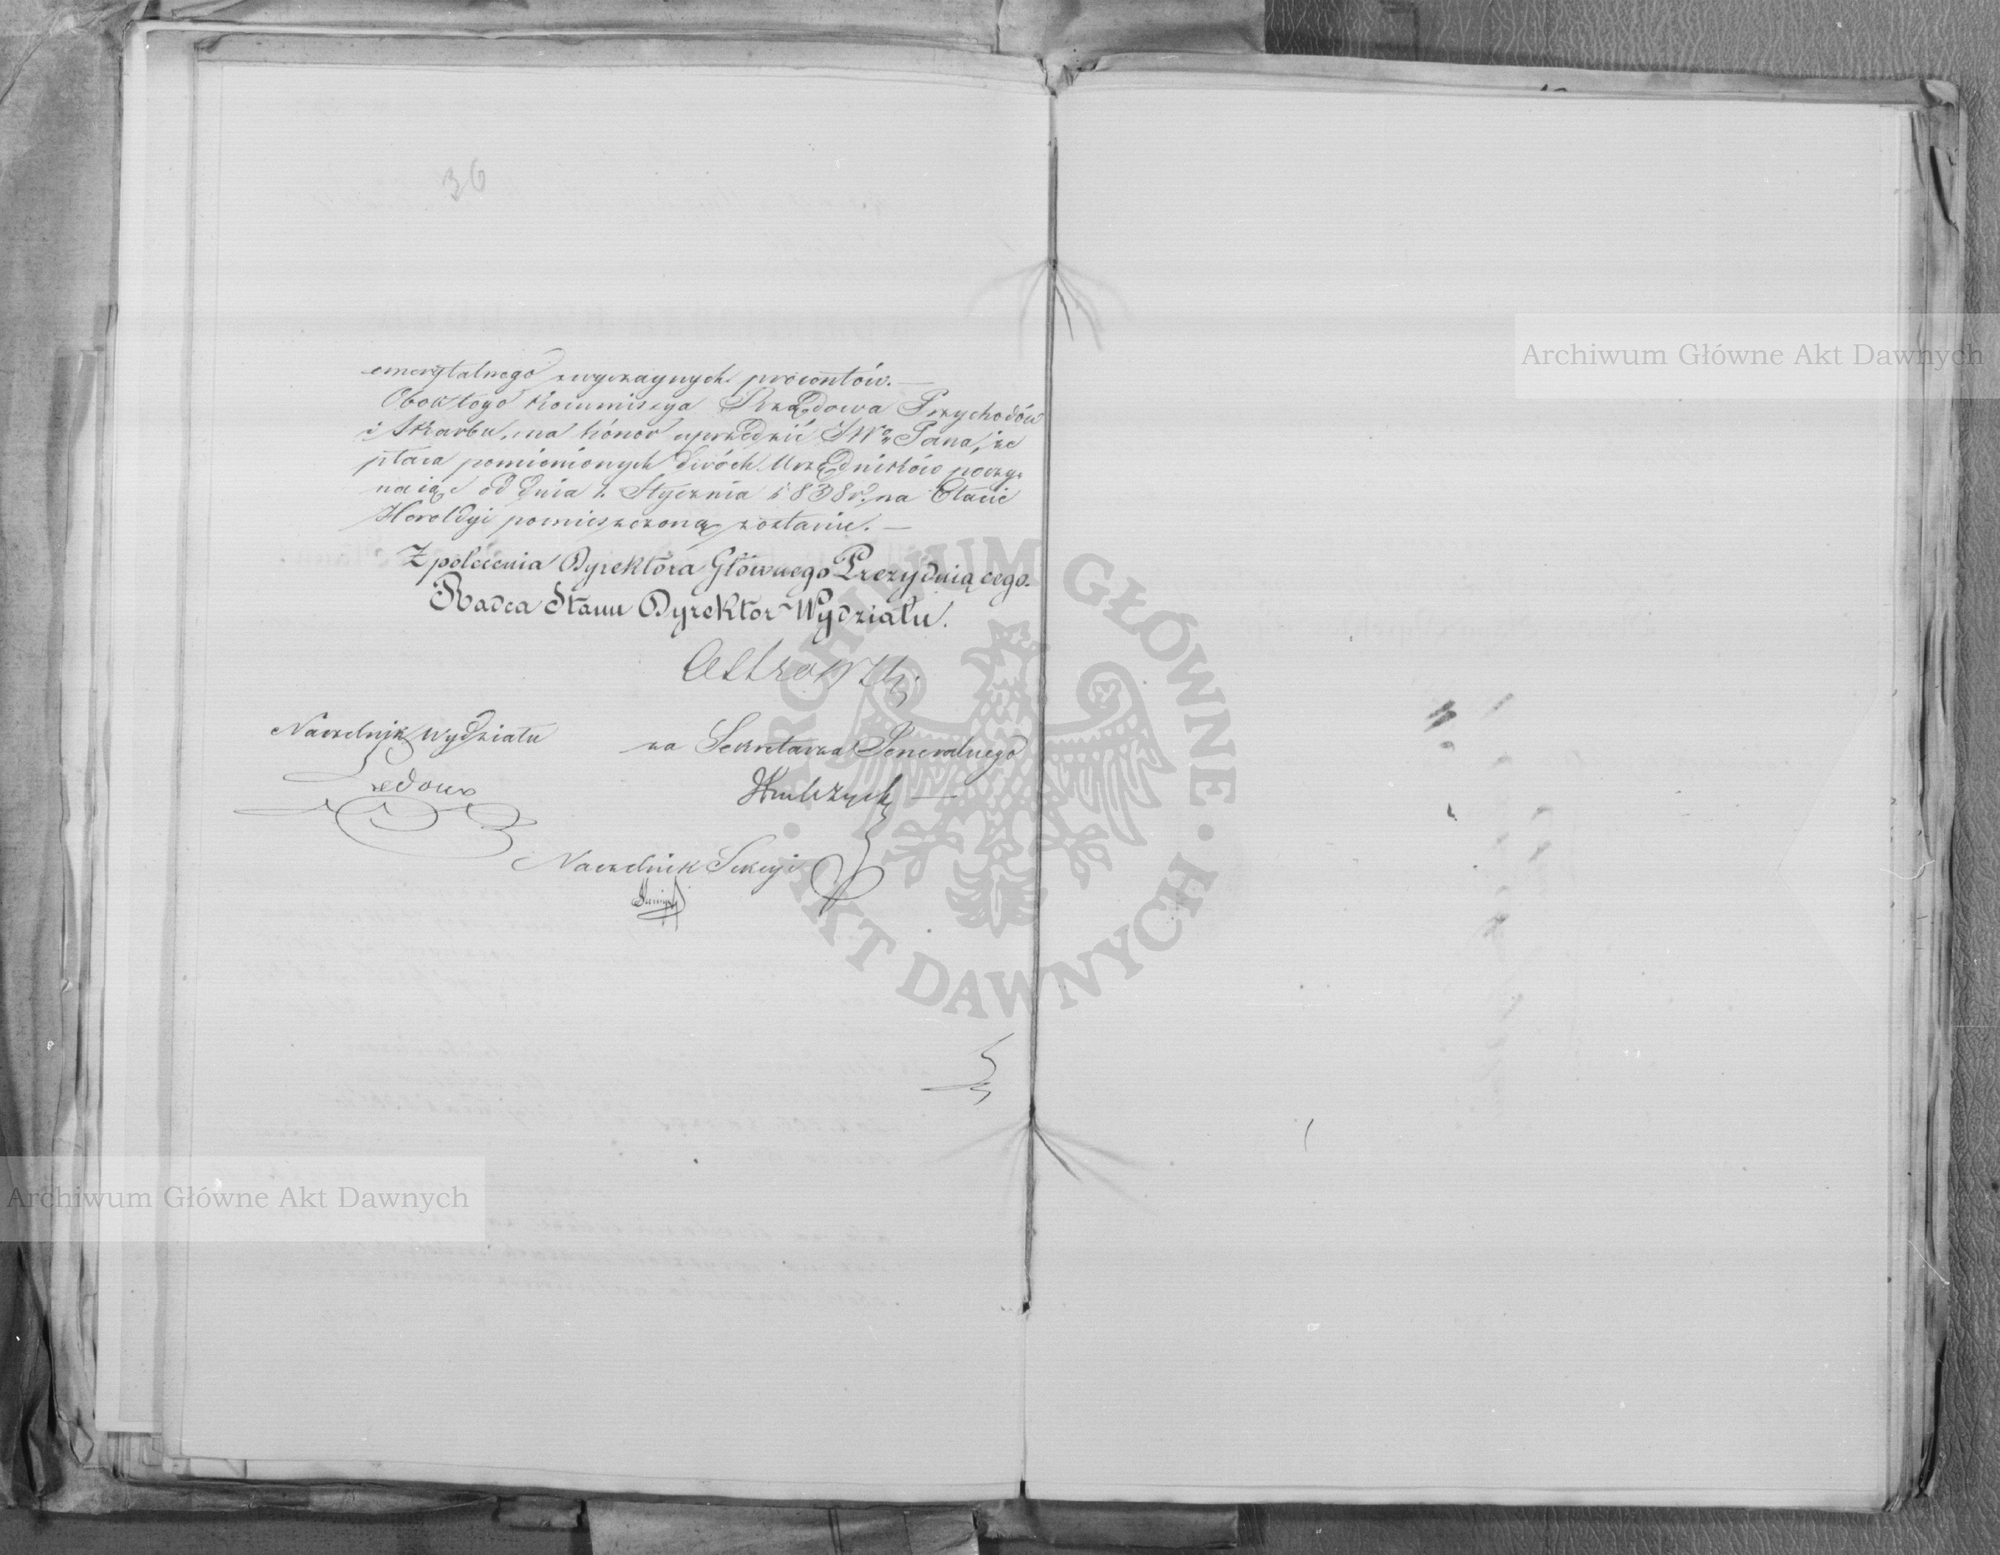 36
emerytalnego zwyczaynych procentów. —
Obok tego Kommissya Rządowa Przychodów
i Skarbu, ma honor uprzedzić JWo Pana, że
płaca pomienionych dwóch Urzędników poczy-
naiąc od dnia 1. Stycznia 1838 r. na Etacie
Heroldyi pomieszczoną zostanie. —
Z polecenia Dyrektora Głównego Prezyduiącego.
Radca Stanu Dyrektor Wydziału.
Naczelnik Wydziału
za Sekretarza Generalnego
Naczelnik Sekcyi
Archiwum Główne Akt Dawnych
Archiwum Główne Akt Dawnych
ARCHIWUM GŁÓWNE · AKT DAWNYCH ·